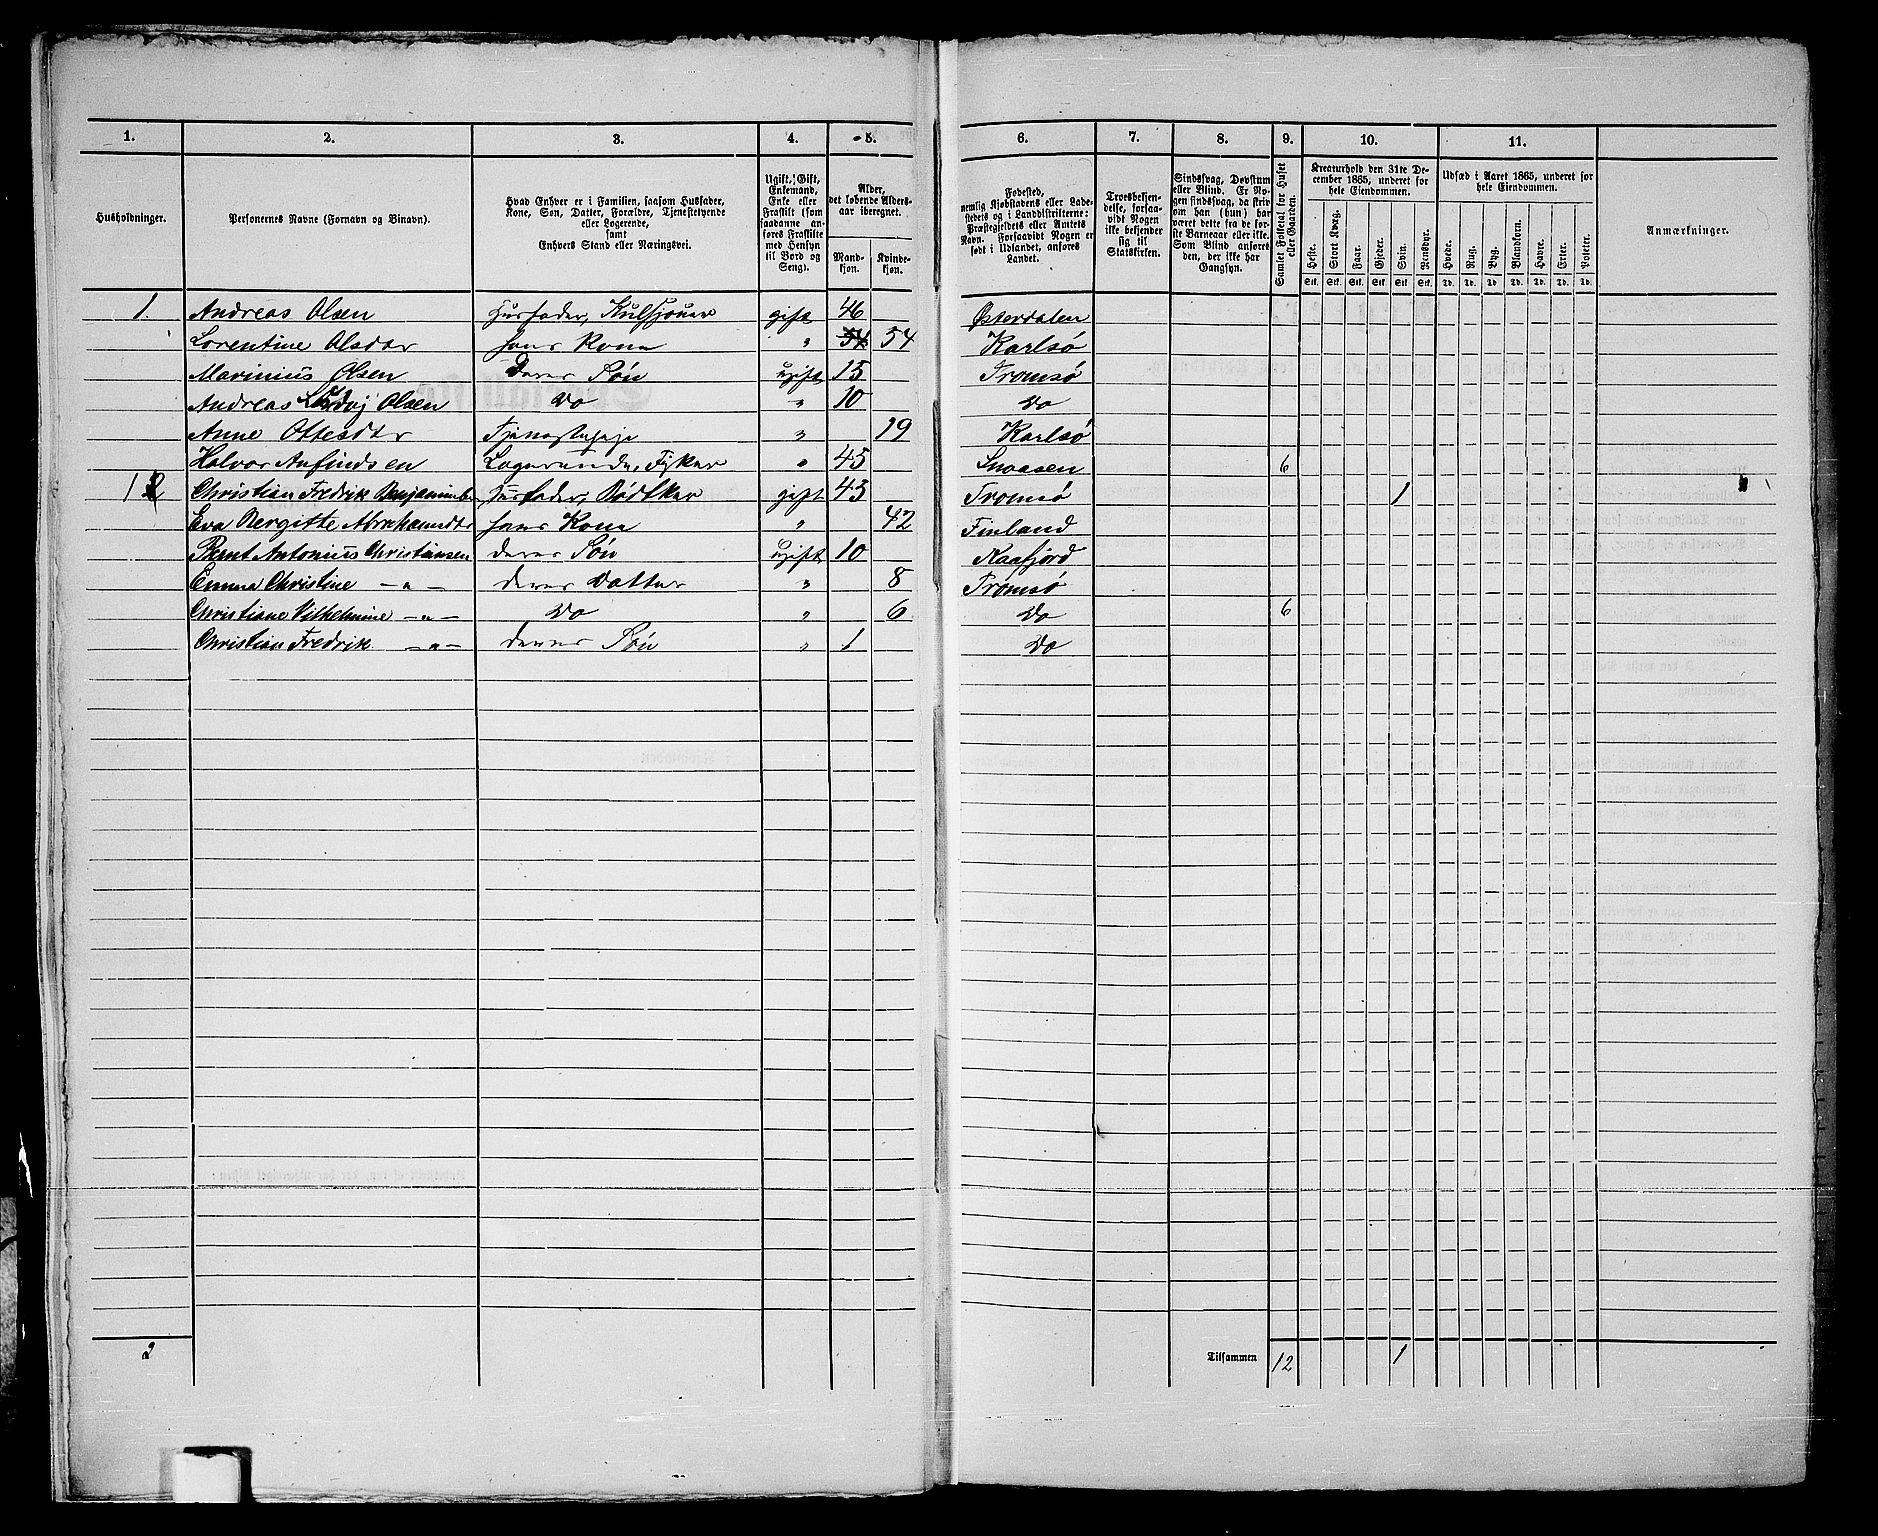 1. 2. 3. 4. 5. 6. 7. 8. 9. 10. 11.
Husholdninger.
Personernes Navne (Fornavn og Binavn).
Hvad Enhver er i Familien, saasom Husfader,
Kone, Søn, Datter, Forældre, Tjenestetyende
eller Logerende,
samt
Enhvers Stand eller Næringsvei.
Ugift, Gift,
Enkemand,
Enke eller
Fraskilt (som
saadanne an-
føres Fraskilte
med Hensyn
til Bord og
Seng).
Alder,
det løbende Alders-
aar iberegnet.
Mand-
kjøn.
Kvinde-
kjøn.
Fødested,
nemlig Kjøbstadens eller Lade-
stedets og i Landdistrikterne:
Præstegjeldets eller Amtets
Navn. Forsaavidt Nogen er
født i Udlandet, anføres
Landet.
Troesbekjen-
delse, forsaa-
vidt Nogen
ikke bekjender
sig til
Statskirken.
Sindssvag, Døvstum
eller Blind. Er No-
gen sindssvag, da skriv
om han (hun) har
været dette fra de før-
ste Barneaar eller ikke.
Som Blind anføres
den, der ikke har
Gangsyn.
Samlet Folketal for Huset
eller Gaarden.
Kreaturhold den 31te De-
cember 1865, underet for
hele Eiendommen.
Heste. Stort Kvæg. Faar. Gjeder. Svin. Rensdyr.
Stk. Stk. Stk. Stk. Stk. Stk.
Udsæd i Aaret 1865, underet for
hele Eiendommen.
Hvede. Rug. Byg. Blandkorn. Havre. Erter. Poteter.
Td. Td. Td. Td. Td. Td. Td.
Anmærkninger.
1. Andreas Olsen Husfader, gift 46 Østerdalen
Lorentine Olsdtr hans Kone " 54 54 Karlsø
Marinius Olsen Deres Søn ugift 15 Tromsø
Andreas Ludvig Olsen Do " 10 Do
Anne Ottesdtr Tjenestepige " 19 Karlsø
Halvor Anfindsen Logerende, Fisker " 45 Snaasen 6
1 2 Christian Fredrik Benjaminsen Husfader, Bødtker gift 43 Tromsø 1
Eva Bergitte Abrahamsdtr hans Kone " 42 Finland
Bernt Antonius Christiansen deres Søn ugift 10 Kaafjord
Emma Christine — " — deres Datter " 8 Tromsø
Christiane Vilhelmine — " — Do " 6 Do 6
Christian Fredrik — " — deres Søn " 1 Do
2 Tilsammen 12 1